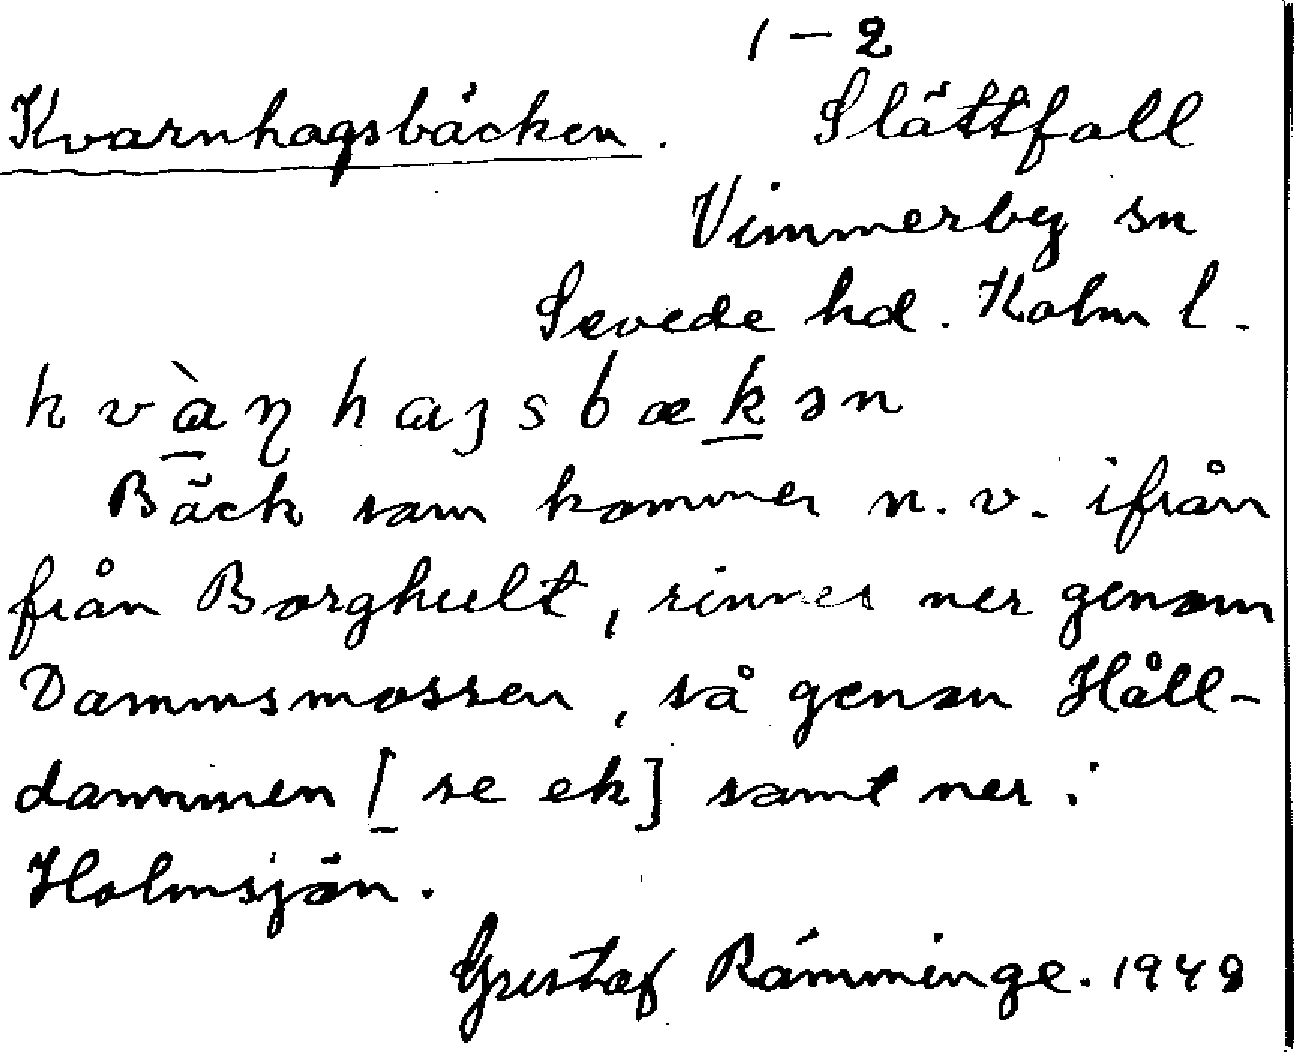 1-2
Kvarnhagsbäcken. Slättfall
Vimmerby sn
Sevede hd. Kalm l.
kvàɳhaʒsbækən
Bäck som kommer n.v. ifrån
från Borghult, rinner ner genom
Dammsmossen, så genom Håll-
dammen [se ek] samt ner i
Holmsjön.
Gustaf Rämminge. 1948